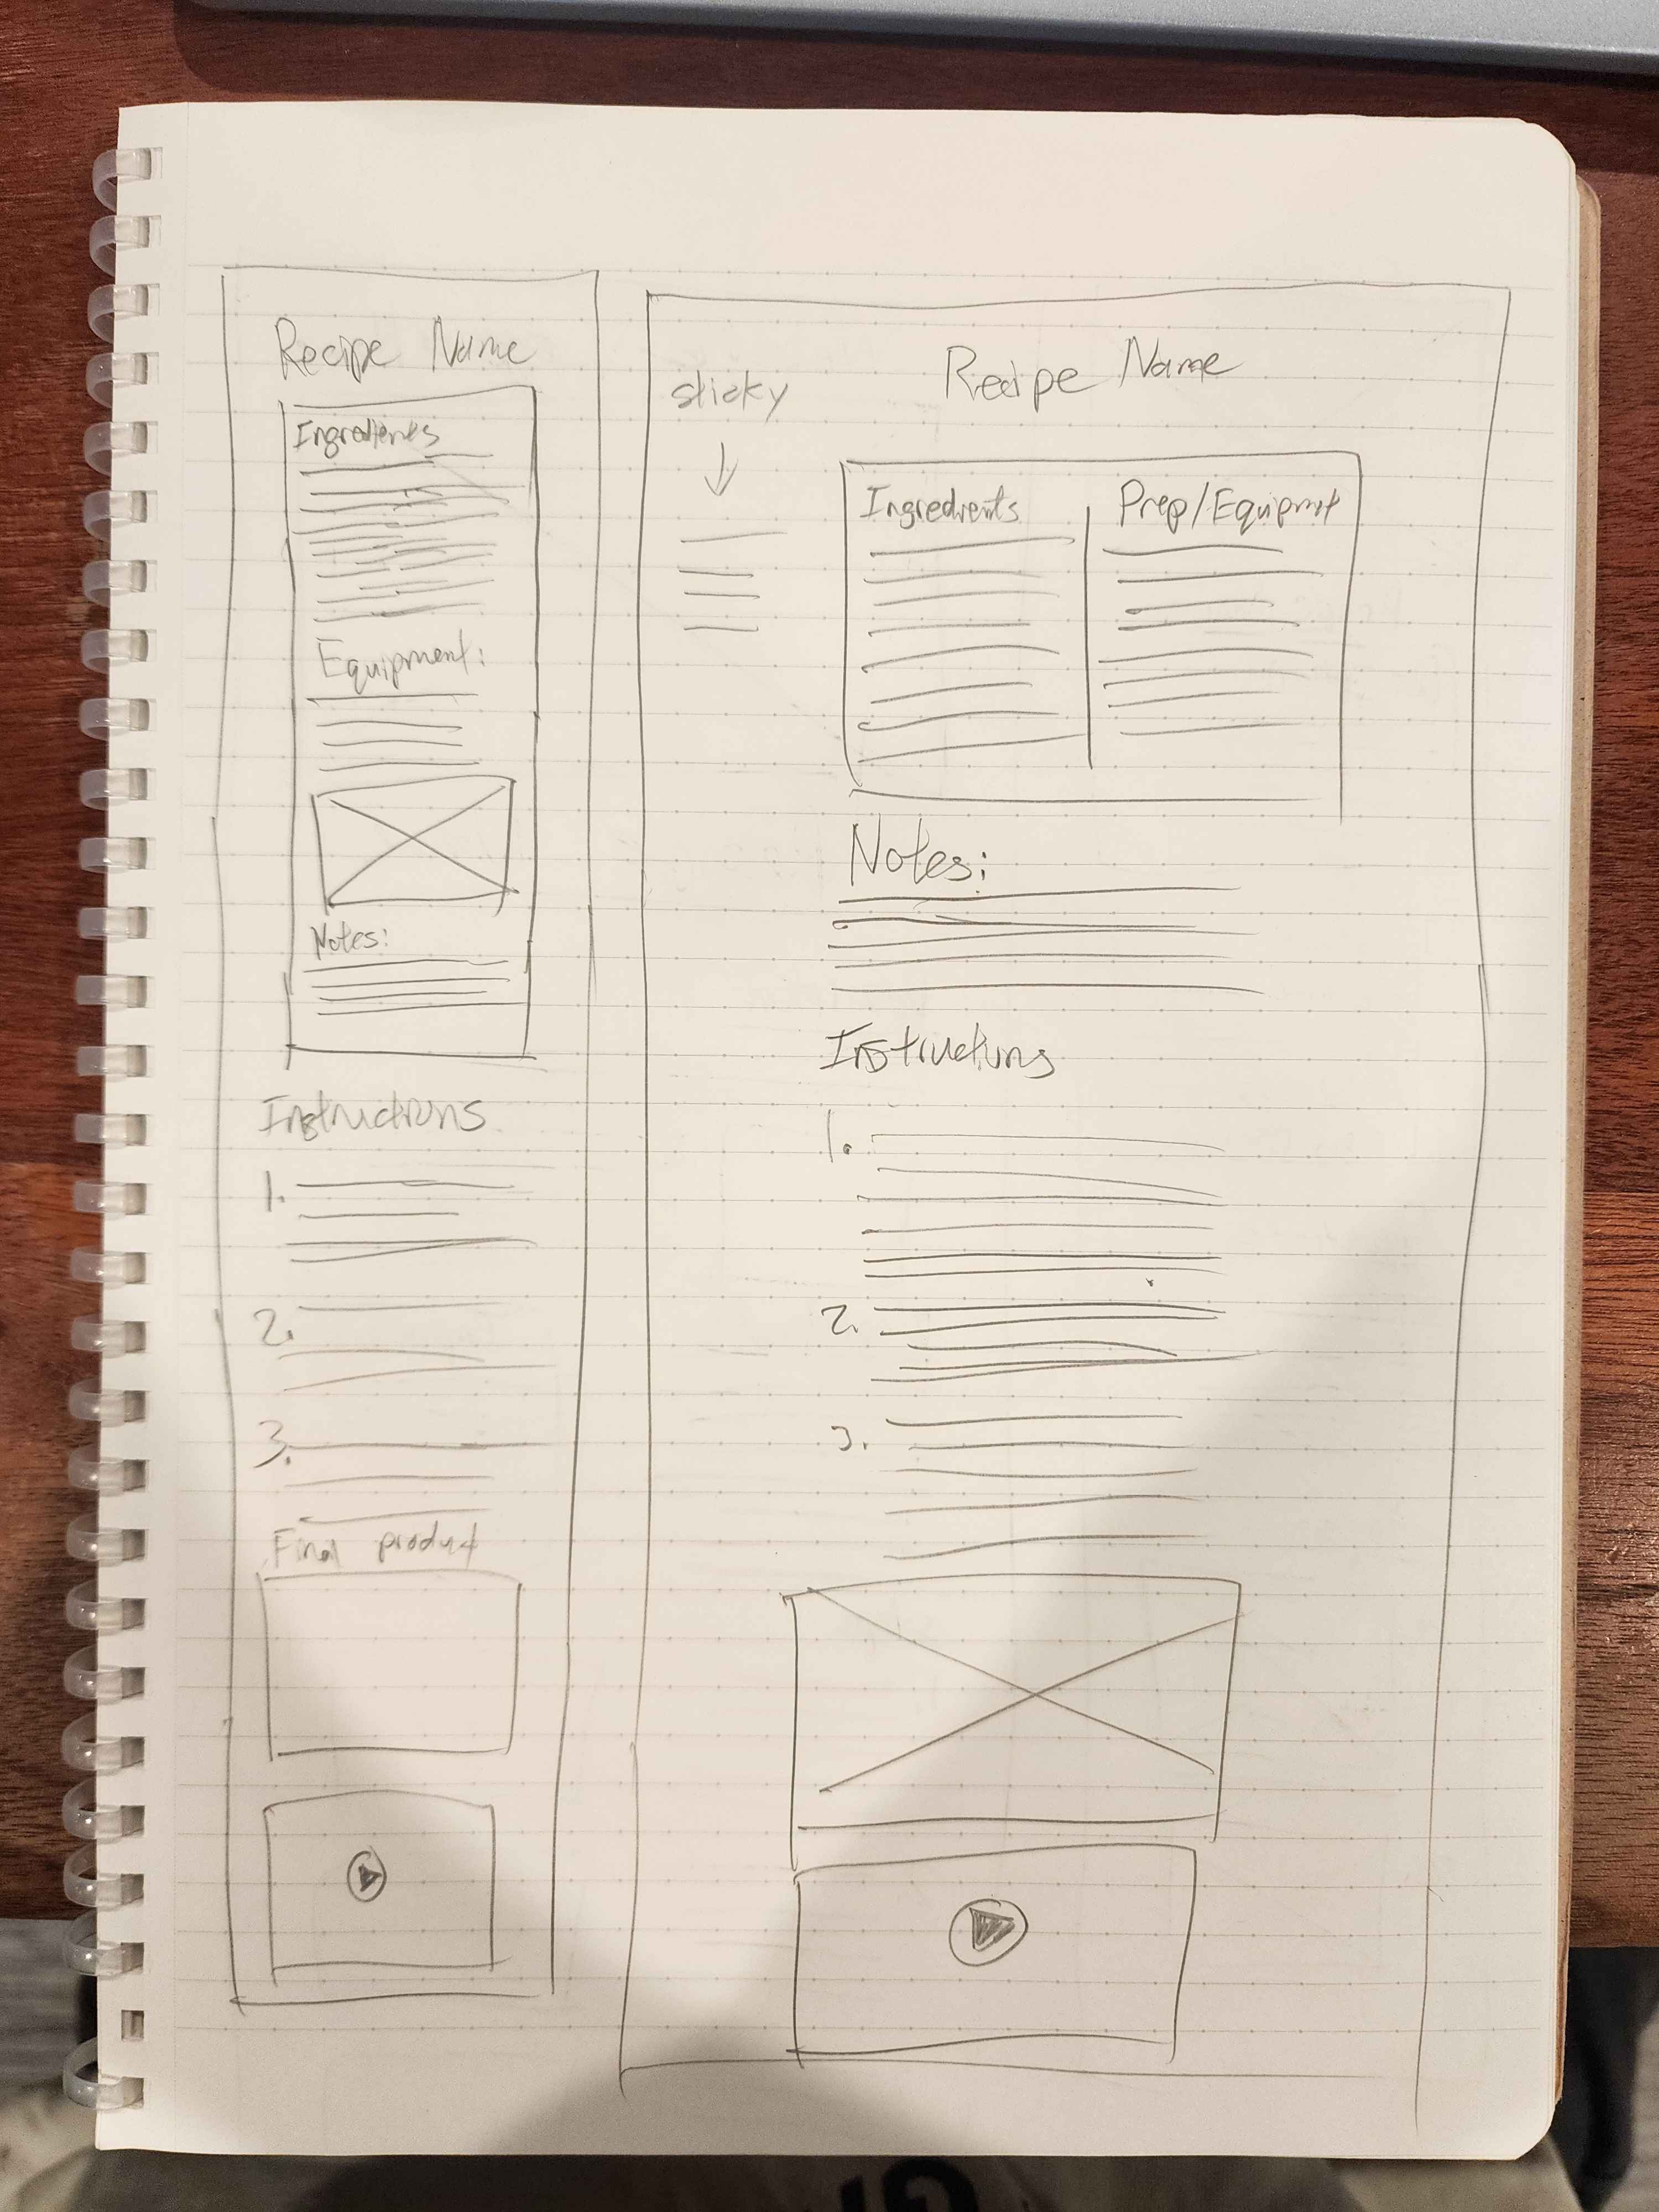 Recipe Name
Ingredients
Equipment:
Notes:
Instructions
1.
2.
3.
Final product
sticky
Recipe Name
Ingredients
Prep/Equipmnt
Notes:
Instructions
1.
2.
3.